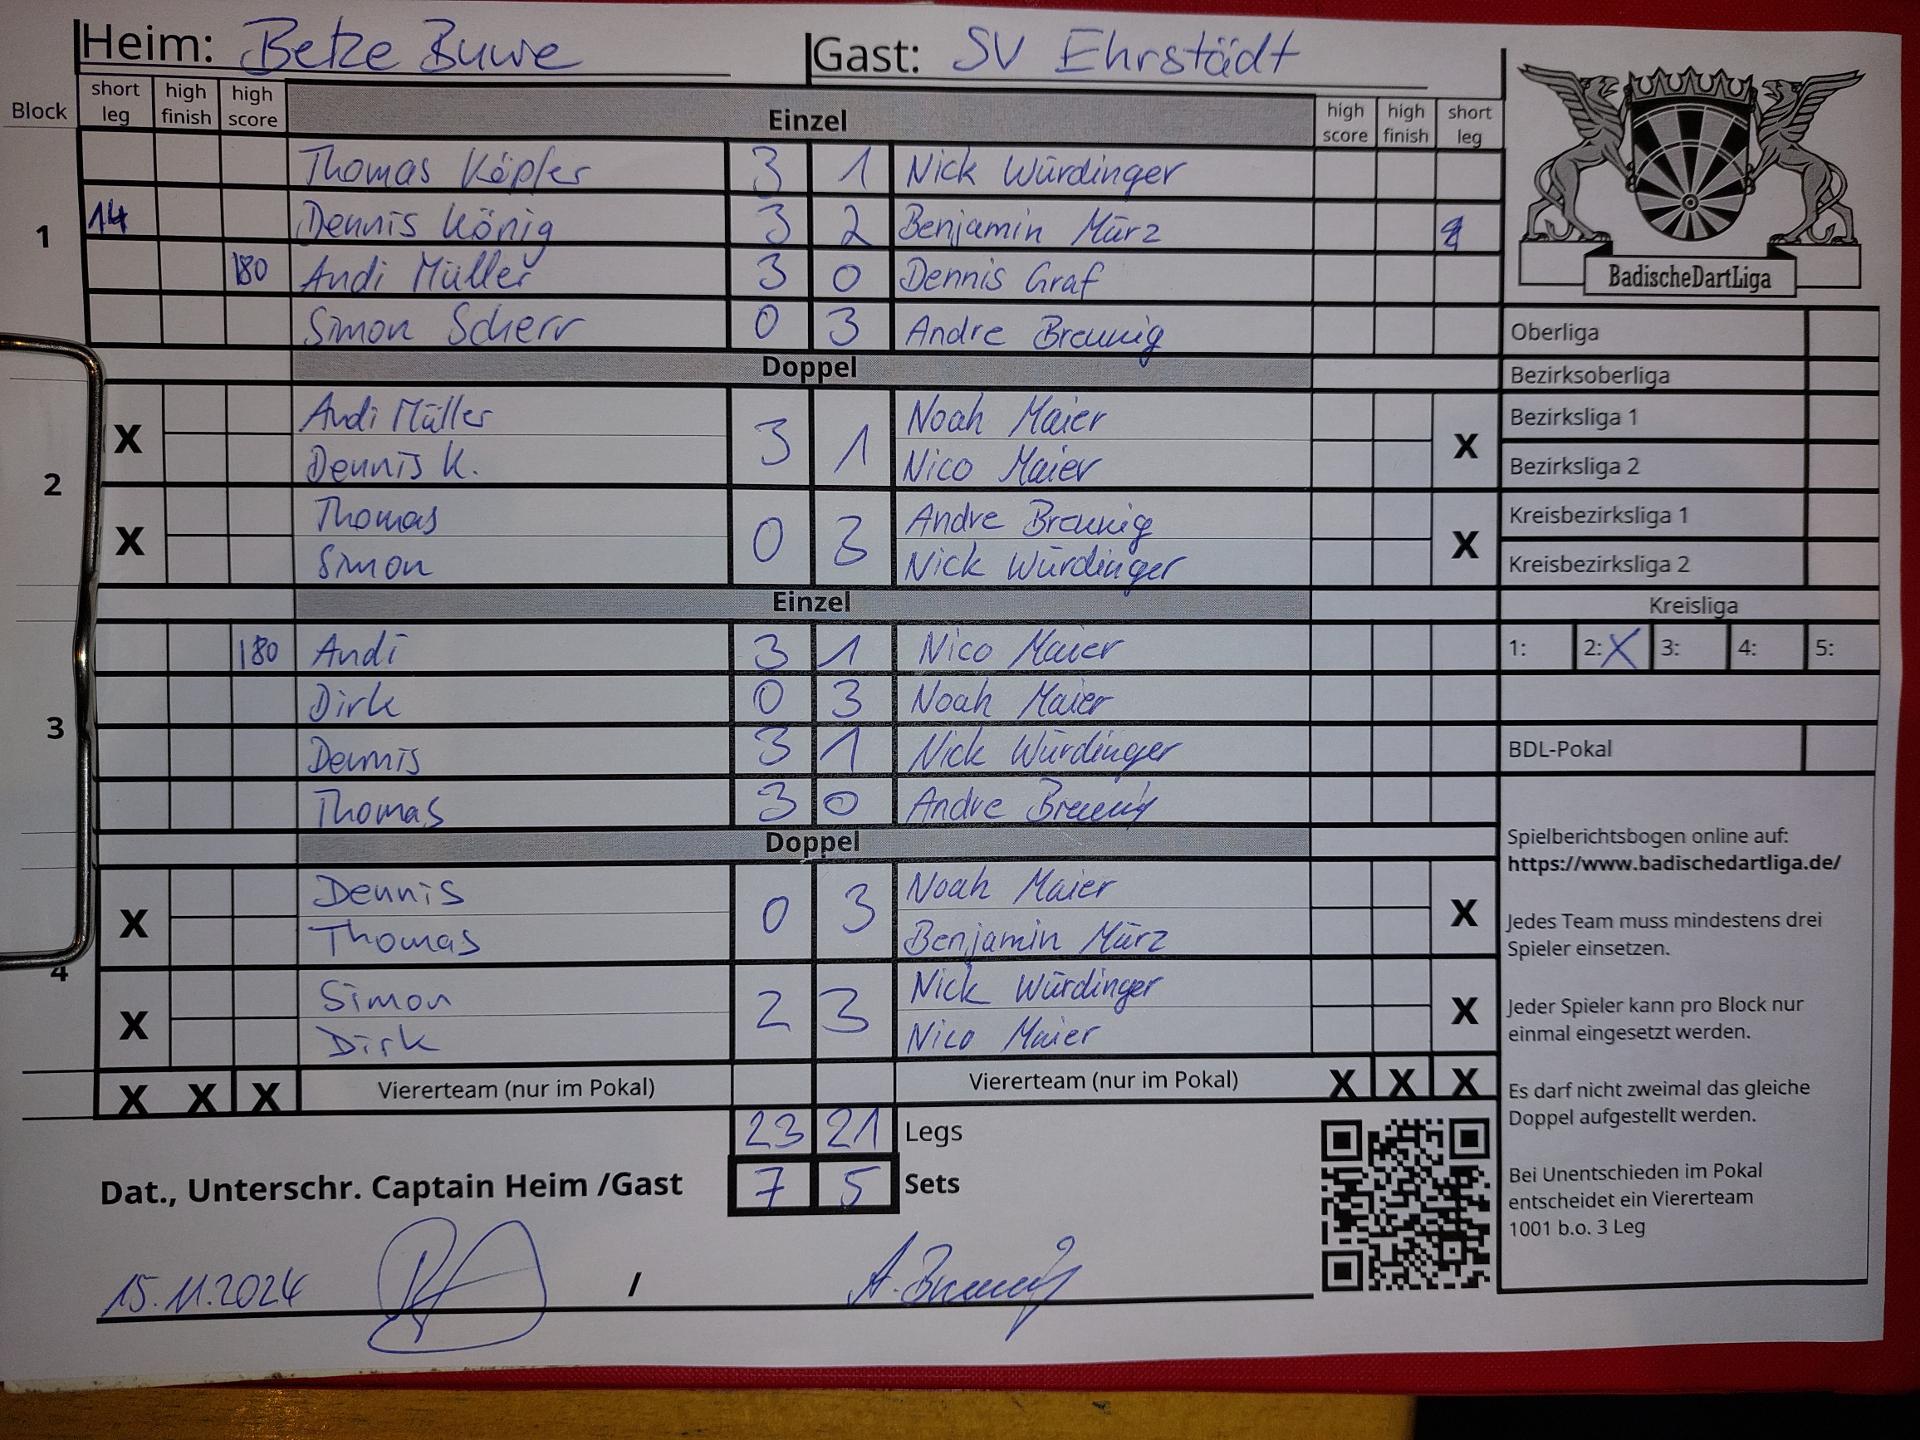 Heim: Betze Buwe Gast: SV Ehrstädt
Block short leg high finish high score Einzel high score high finish short leg
1
Thomas Köpfer 3 1 Nick Würdinger
14 Dennis König 3 2 Benjamin März
180 Andi Müller 3 0 Dennis Graf
Simon Scherr 0 3 Andre Breunig
Doppel
2
X Andi Müller 3 1 Noah Maier X
Dennis K. Nico Maier
X Thomas 0 3 Andre Breunig X
Simon Nick Würdinger
Einzel
3
180 Andi 3 1 Nico Maier
Dirk 0 3 Noah Maier
Dennis 3 1 Nick Würdinger
Thomas 3 0 Andre Breunig
Doppel
4
X Dennis 0 3 Noah Maier X
Thomas Benjamin März
X Simon 2 3 Nick Würdinger X
Dirk Nico Maier
X X X Viererteam (nur im Pokal) Viererteam (nur im Pokal) X X X
23 21 Legs
Dat., Unterschr. Captain Heim /Gast 7 5 Sets
15.11.2024 / A. Breunig
BadischeDartLiga
Oberliga
Bezirksoberliga
Bezirksliga 1
Bezirksliga 2
Kreisbezirksliga 1
Kreisbezirksliga 2
Kreisliga
1: 2: X 3: 4: 5:
BDL-Pokal
Spielberichtsbogen online auf:
https://www.badischedartliga.de/
Jedes Team muss mindestens drei
Spieler einsetzen.
Jeder Spieler kann pro Block nur
einmal eingesetzt werden.
Es darf nicht zweimal das gleiche
Doppel aufgestellt werden.
Bei Unentschieden im Pokal
entscheidet ein Viererteam
1001 b.o. 3 Leg